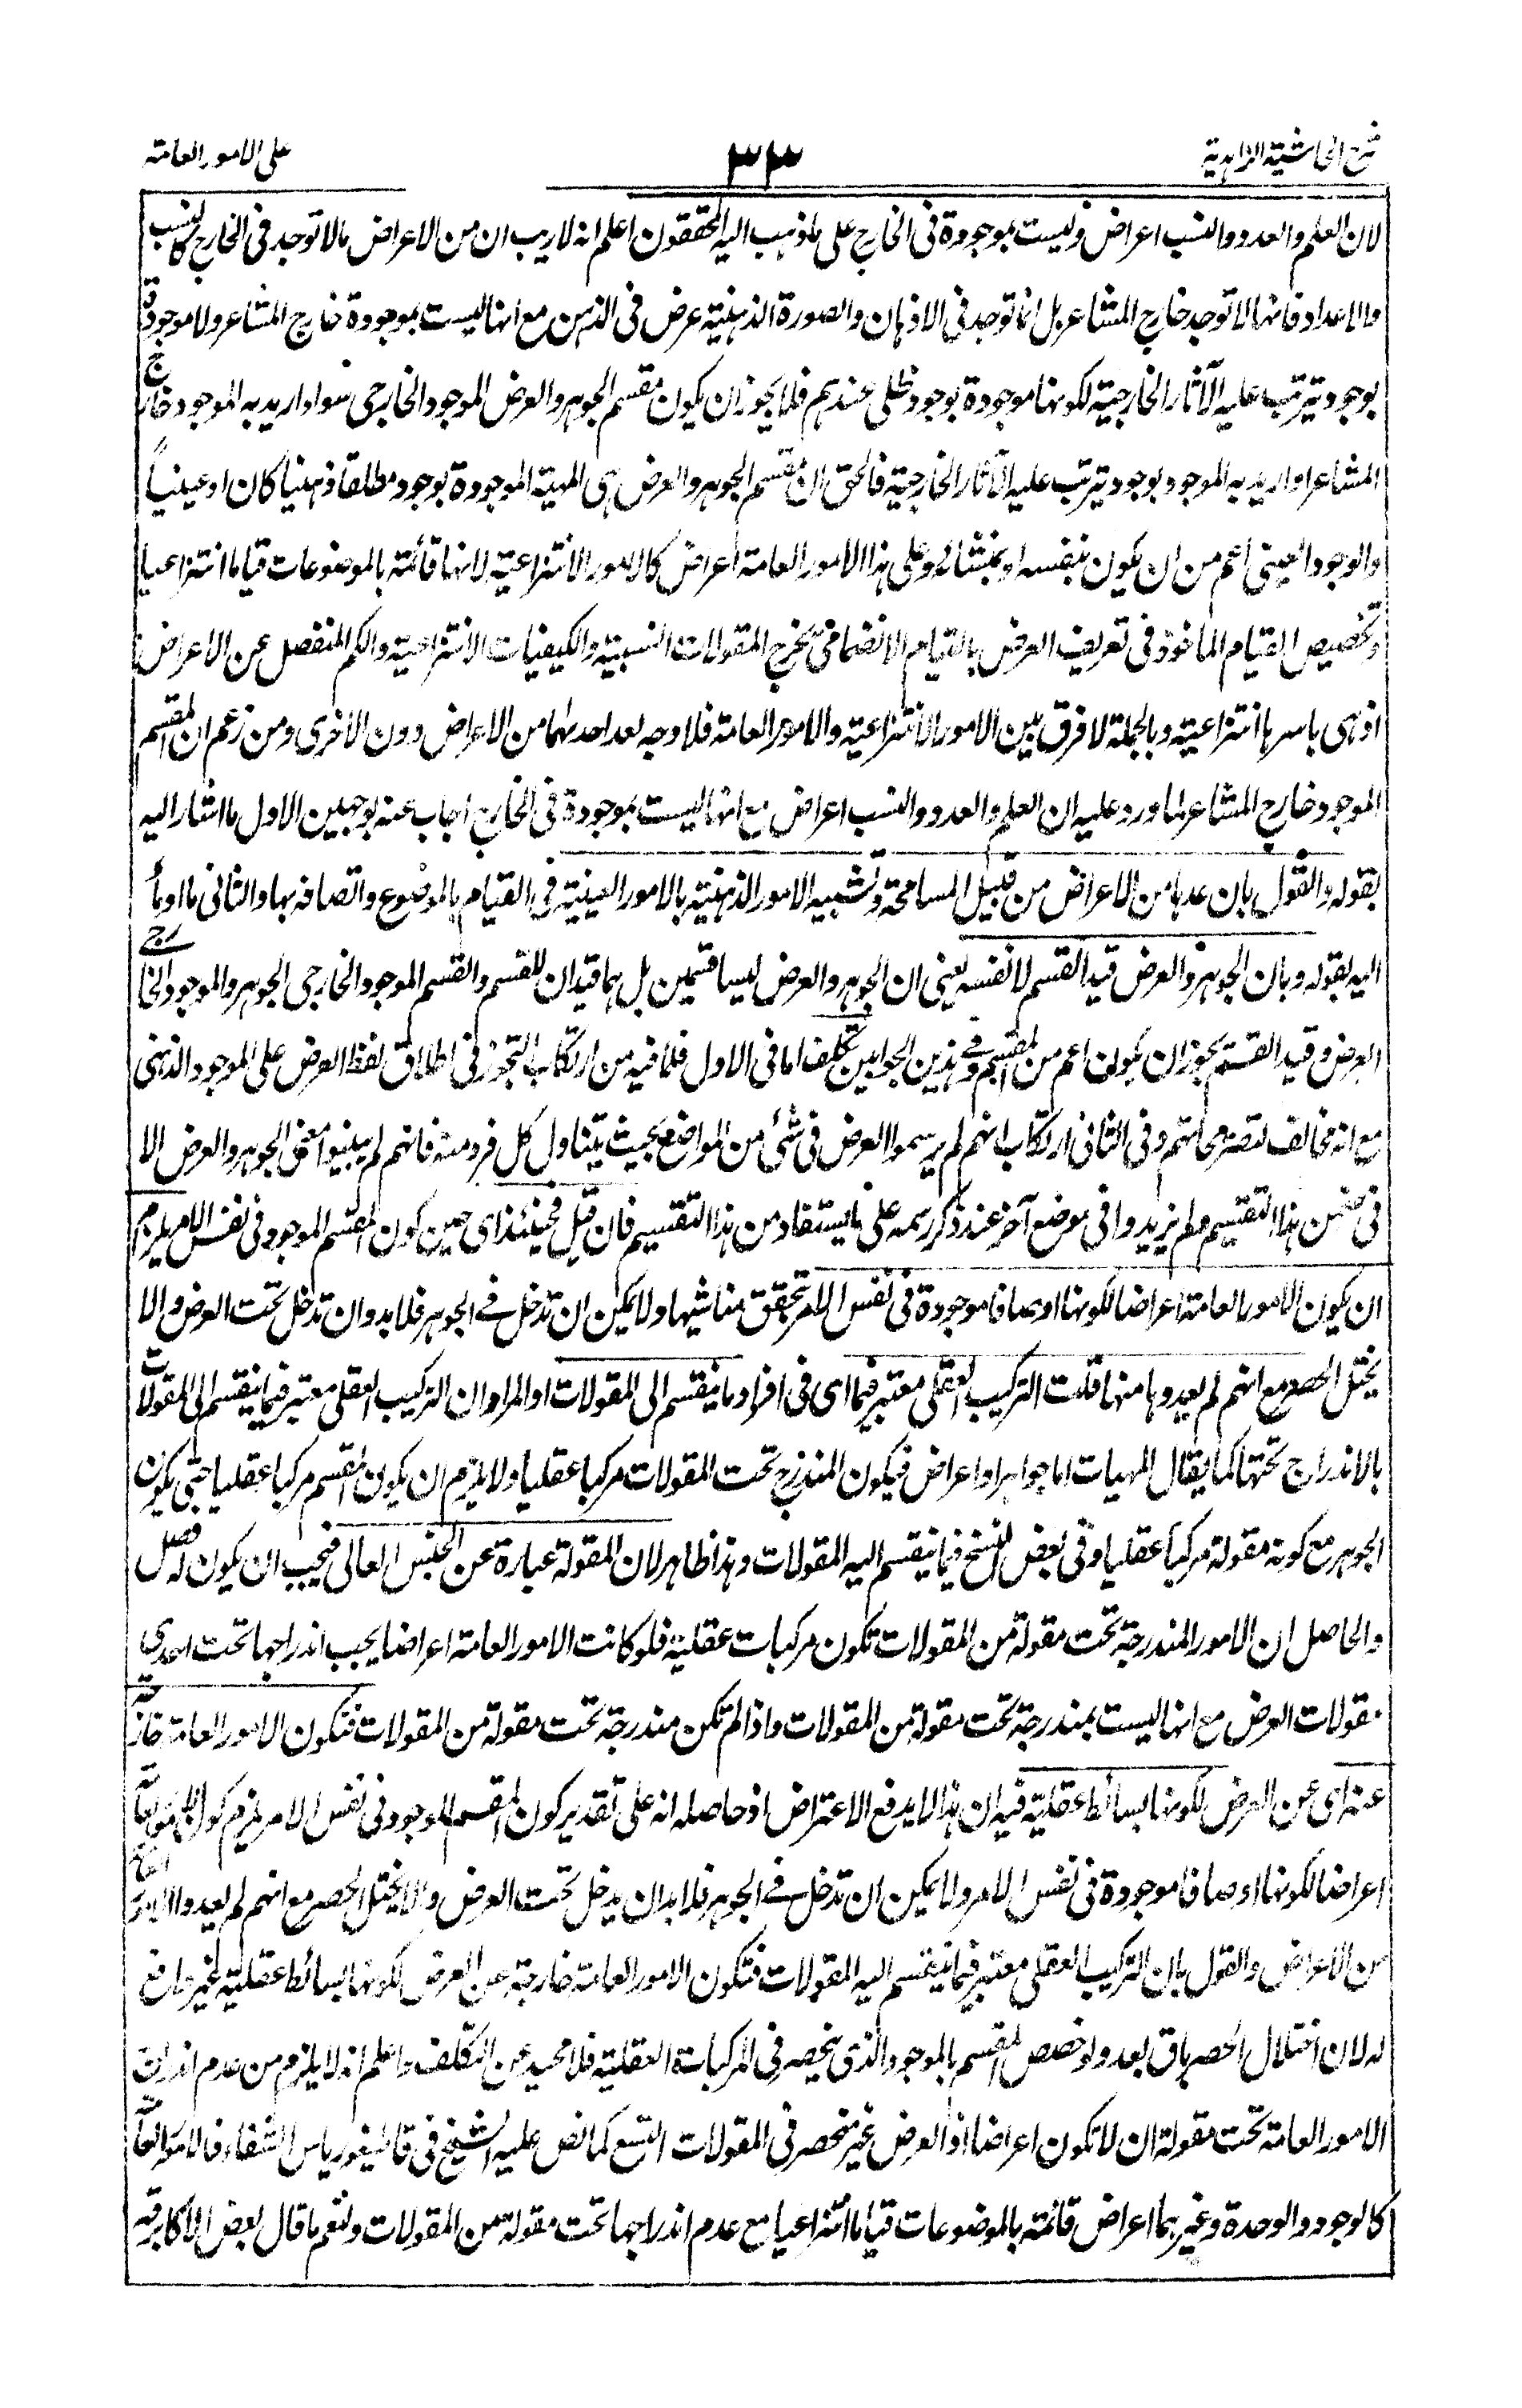 شرح الحاشية الزاهدية
٣٣
على الامور العامة
لان العلم والعدد والنسب اعراض وليست بموجودة فى الخارج على ما ذهب اليه المحققون اعلم انه لا ريب ان من الاعراض ما لا توجد فى الخارج كالنسب
والاعداد فانها لا توجد خارج المشاعر بل انما توجد فى الاذهان والصورة الذهنية عرض فى الذهن مع انها ليست بموجودة خارج المشاعر ولا موجودة
بوجود يترتب عليه الآثار الخارجية لكونها موجودة بوجود ظلى عندهم فلا يجوز ان يكون مقسم الجوهر والعرض الموجود الخارجى سواء اريد به الموجود خارج
المشاعر او اريد به الموجود بوجود يترتب عليه الآثار الخارجية فالحق ان مقسم الجوهر والعرض هى المهية الموجودة بوجود مطلقا ذهنيا كان او عينياً
والوجود العينى اعم من ان يكون بنفسه او بمنشائه وعلى هذا الامور العامة اعراض كالامور الانتزاعية لانها قائمة بالموضوعات قياما انتزاعيا
وتخصيص القيام الماخوذ فى تعريف العرض بالقيام الانضمامى يخرج المقولات النسبية والكيفيات الانتزاعية والكم المنفصل عن الاعراض
اذ هى باسرها انتزاعية وبالجملة لا فرق بين الامور الانتزاعية والامور العامة فلا وجه لعد احدهما من الاعراض دون الأخرى ومن زعم ان المقسم
الموجود خارج المشاعر لما ورد عليه ان العلم والعدد والنسب اعراض مع انها ليست بموجودة فى الخارج اجاب عنه بوجهين الاول ما اشار اليه
بقوله والقول بان عدها من الاعراض من قبيل المسامحة وتشبيه الامور الذهنية بالامور العينية فى القيام بالموضوع واتصافه بها والثانى ما اومأ
اليه بقوله وبان الجوهر والعرض قيد القسم لا نفسه يعنى ان الجوهر والعرض ليسا قسمين بل هما قيدان للقسم والقسم الموجود الخارجى الجوهر والموجود الخارجى
العرض وقيد القسم يجوز ان يكون اعم من المقسم وفى هذين الجوابين تكلف اما فى الاول فلما فيه من ارتكاب التجوز فى اطلاق لفظ العرض على الموجود الذهنى
مع انه مخالف لتصريحاتهم وفى الثانى ارتكاب انهم لم يرسموا العرض فى شئ من المواضع بحيث يتناول كل فرد منه فانهم لم يبينوا معنى الجوهر والعرض الا
فى ضمن هذا التقسيم ولم يزيدوا فى موضع آخر عند ذكر رسمه على ما يستفاد من هذا التقسيم فان قيل فحينئذ اى حين كون المقسم الموجود فى نفس الامر يلزم
ان يكون الامور العامة اعراضا لكونها اوصافا موجودة فى نفس الامر بتحقق مناشيها ولا يمكن ان تدخل فى الجوهر فلا بد وان تدخل تحت العرض والا
يختل الحصر مع انهم لم يعدوها منها قلت التركيب العقلى معتبر فيما اى فى افراد ما ينقسم الى المقولات او المراد ان التركيب العقلى معتبر فيما ينقسم الى المقولات
بالاندراج تحتها كما يقال المهيات اما جواهر او اعراض فيكون المندرج تحت المقولات مركبا عقليا ولا يلزم ان يكون المقسم مركبا عقليا حتى يكون
الجوهر مع كونه مقولة مركبا عقليا وفى بعض النسخ فيما ينقسم اليه المقولات وهذا ظاهر لان المقولة عبارة عن الجنس العالى فيجب ان يكون له فصل
والحاصل ان الامور المندرجة تحت مقولة من المقولات تكون مركبات عقلية فلو كانت الامور العامة اعراضا يجب اندراجها تحت احدى
مقولات العرض مع انها ليست بمندرجة تحت مقولة من المقولات واذا لم تكن مندرجة تحت مقولة من المقولات فتكون الامور العامة خارجة
عنه اى عن العرض لكونها بسائط عقلية فيه ان هذا لا يدفع الاعتراض اذ حاصله انه على تقدير كون المقسم الموجود فى نفس الامر يلزم كون الامور العامة
اعراضا لكونها اوصافا موجودة فى نفس الامر ولا يمكن ان تدخل فى الجوهر فلا بد ان يدخل تحت العرض والا يختل الحصر مع انهم لم يعدوا الامور العامة
من الاعراض والقول بان التركيب العقلى معتبر فيما ينقسم اليه المقولات فتكون الامور العامة خارجة عن العرض لكونها بسائط عقلية غير دافع
له لان اختلال الحصر باق بعد ولو خصص المقسم بالموجود الذى ينحصر فى المركبات العقلية فلا محيد عن التكلف واعلم انه لا يلزم من عدم اندراج
الامور العامة تحت مقولة ان لا تكون اعراضا اذ العرض غير منحصر فى المقولات التسع كما نص عليه الشيخ فى قاطيغورياس الشفاء فالامور العامة
كالوجود والوحدة وغيرهما اعراض قائمة بالموضوعات قياما انتزاعيا مع عدم اندراجها تحت مقولة من المقولات ولنعم ما قال بعض الاكابر قه